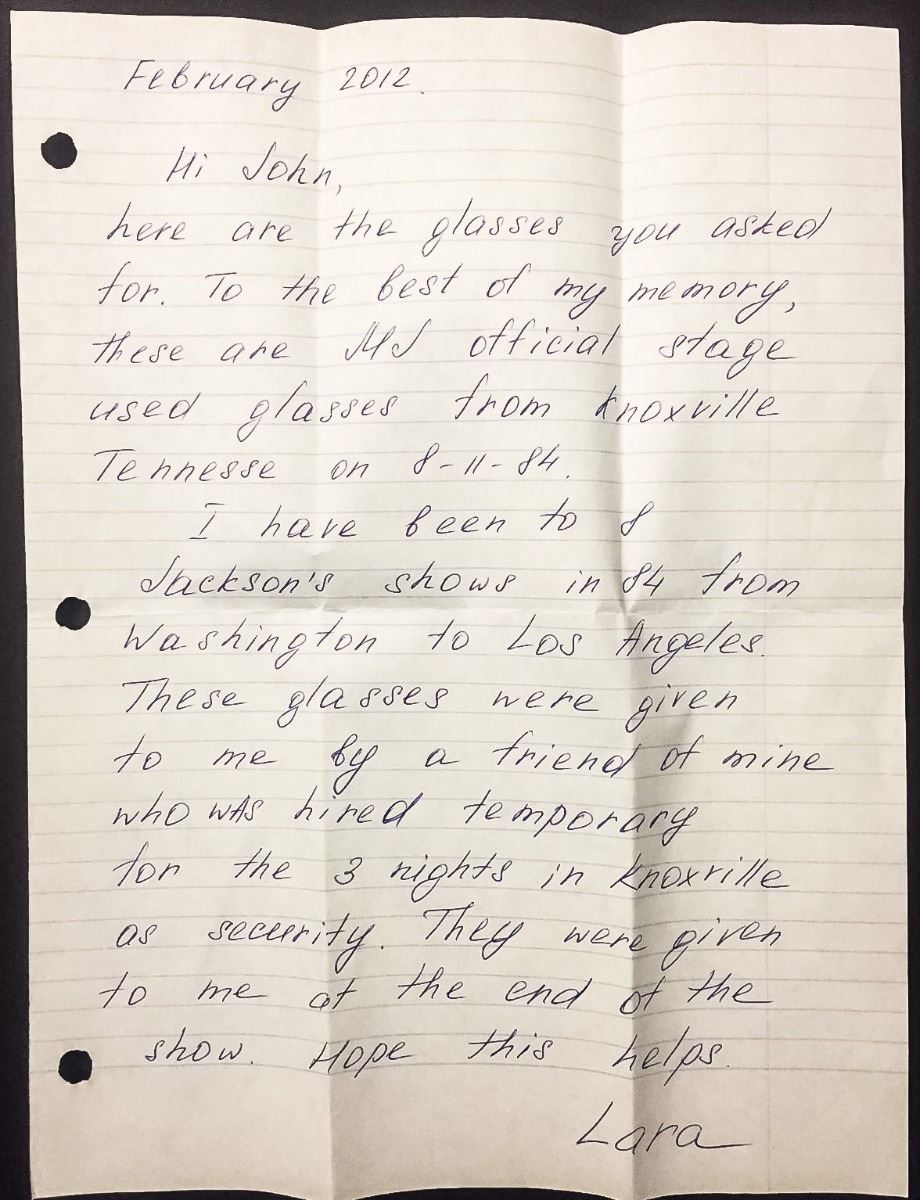 February 2012.
Hi John,
here are the glasses you asked
for. To the best of my memory,
these are MJ official stage
used glasses from Knoxville
Tennesse on 8-11-84.
I have been to 8
Jackson's shows in 84 from
Washington to Los Angeles.
These glasses were given
to me by a friend of mine
who was hired temporary
for the 3 nights in Knoxville
as security. They were given
to me at the end of the
show. Hope this helps.
Lara